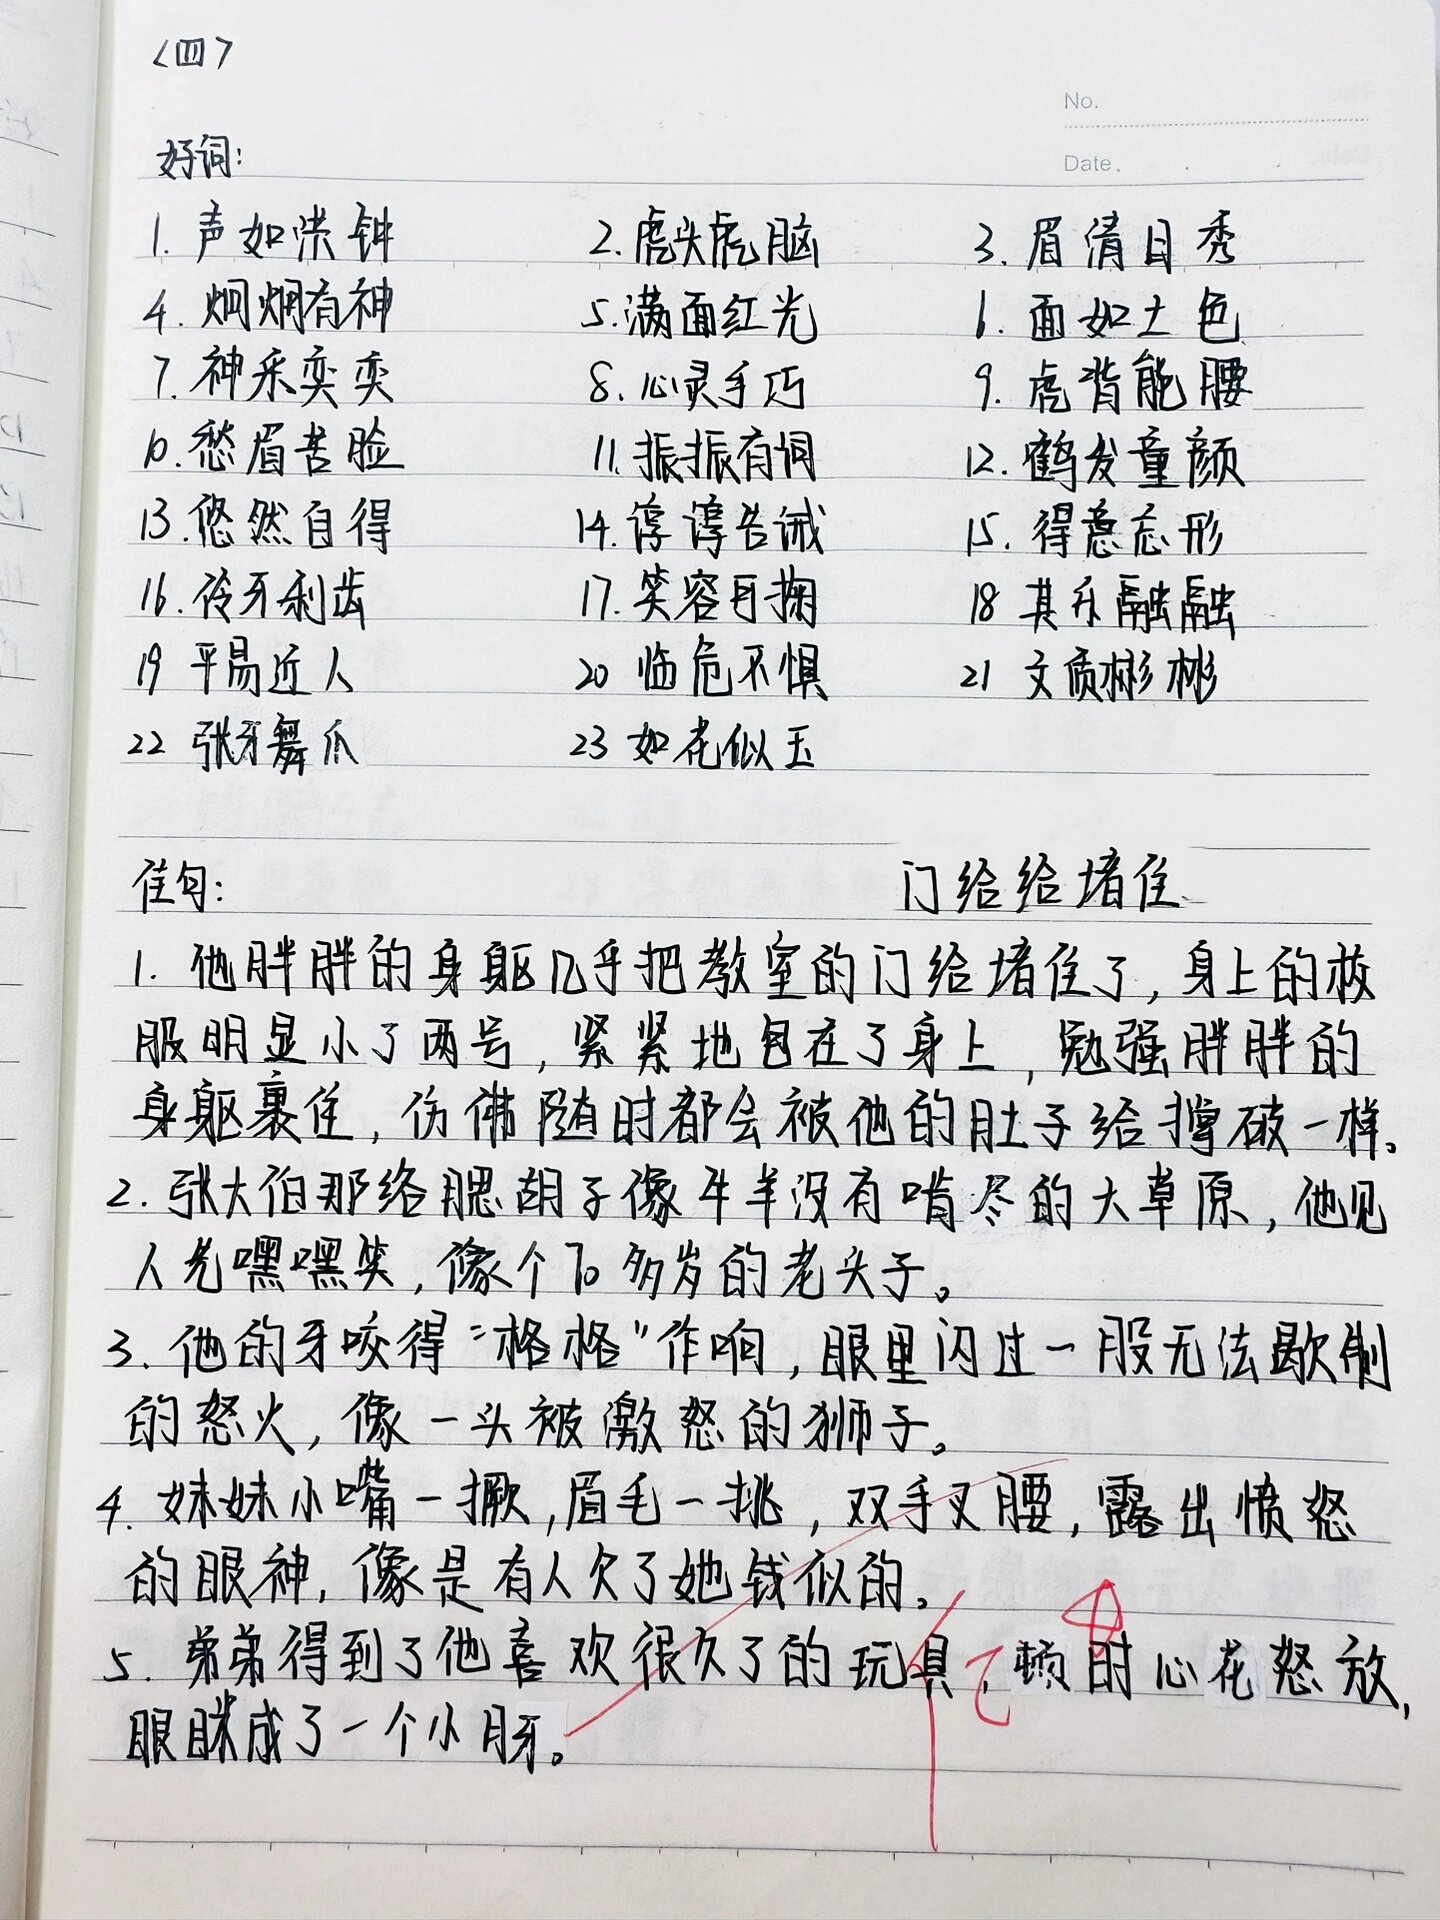 〈四〉
No.
Date.
好词:
1. 声如洪钟 2. 虎头虎脑 3. 眉清目秀
4. 炯炯有神 5. 满面红光 6. 面如土色
7. 神采奕奕 8. 心灵手巧 9. 虎背能腰
10. 愁眉苦脸 11. 振振有词 12. 鹤发童颜
13. 悠然自得 14. 谆谆告诫 15. 得意忘形
16. 伶牙利齿 17. 笑容可掬 18 其乐融融
19 平易近人 20 临危不惧 21 文质彬彬
22 张牙舞爪 23 如花似玉
佳句: 门给给堵住
1. 他胖胖的身躯几乎把教室的门给堵住了, 身上的校
服明显小了两号, 紧紧地包在了身上, 勉强胖胖的
身躯裹住, 仿佛随时都会被他的肚子给撑破一样。
2. 张大伯那络腮胡子像牛羊没有啃尽的大草原, 他见
人先嘿嘿笑, 像个70多岁的老头子。
3. 他的牙咬得“格格”作响, 眼里闪过一股无法歇制
的怒火, 像一头被激怒的狮子。
4. 妹妹小嘴一撅, 眉毛一挑, 双手叉腰, 露出愤怒
的眼神, 像是有人欠了她钱似的。
5. 弟弟得到了他喜欢很久了的玩具, 顿时心花怒放,
眼眯成了一个小月牙。